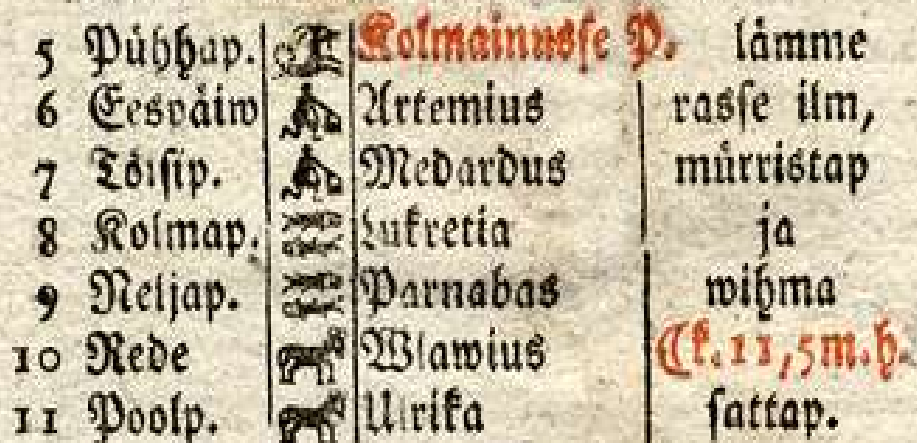 5 Pühhap. Kolmainusse P. lämme
6 Eespäiw Artemius rasse ilm,
7 Töisip. Medardus mürristap
8 Kolmap. Lukretia ja
9 Neljap. Parnabas wihma
10 Rede Wlawius Ck. 11, 5 m. h.
11 Poolp. Ulrika sattap.